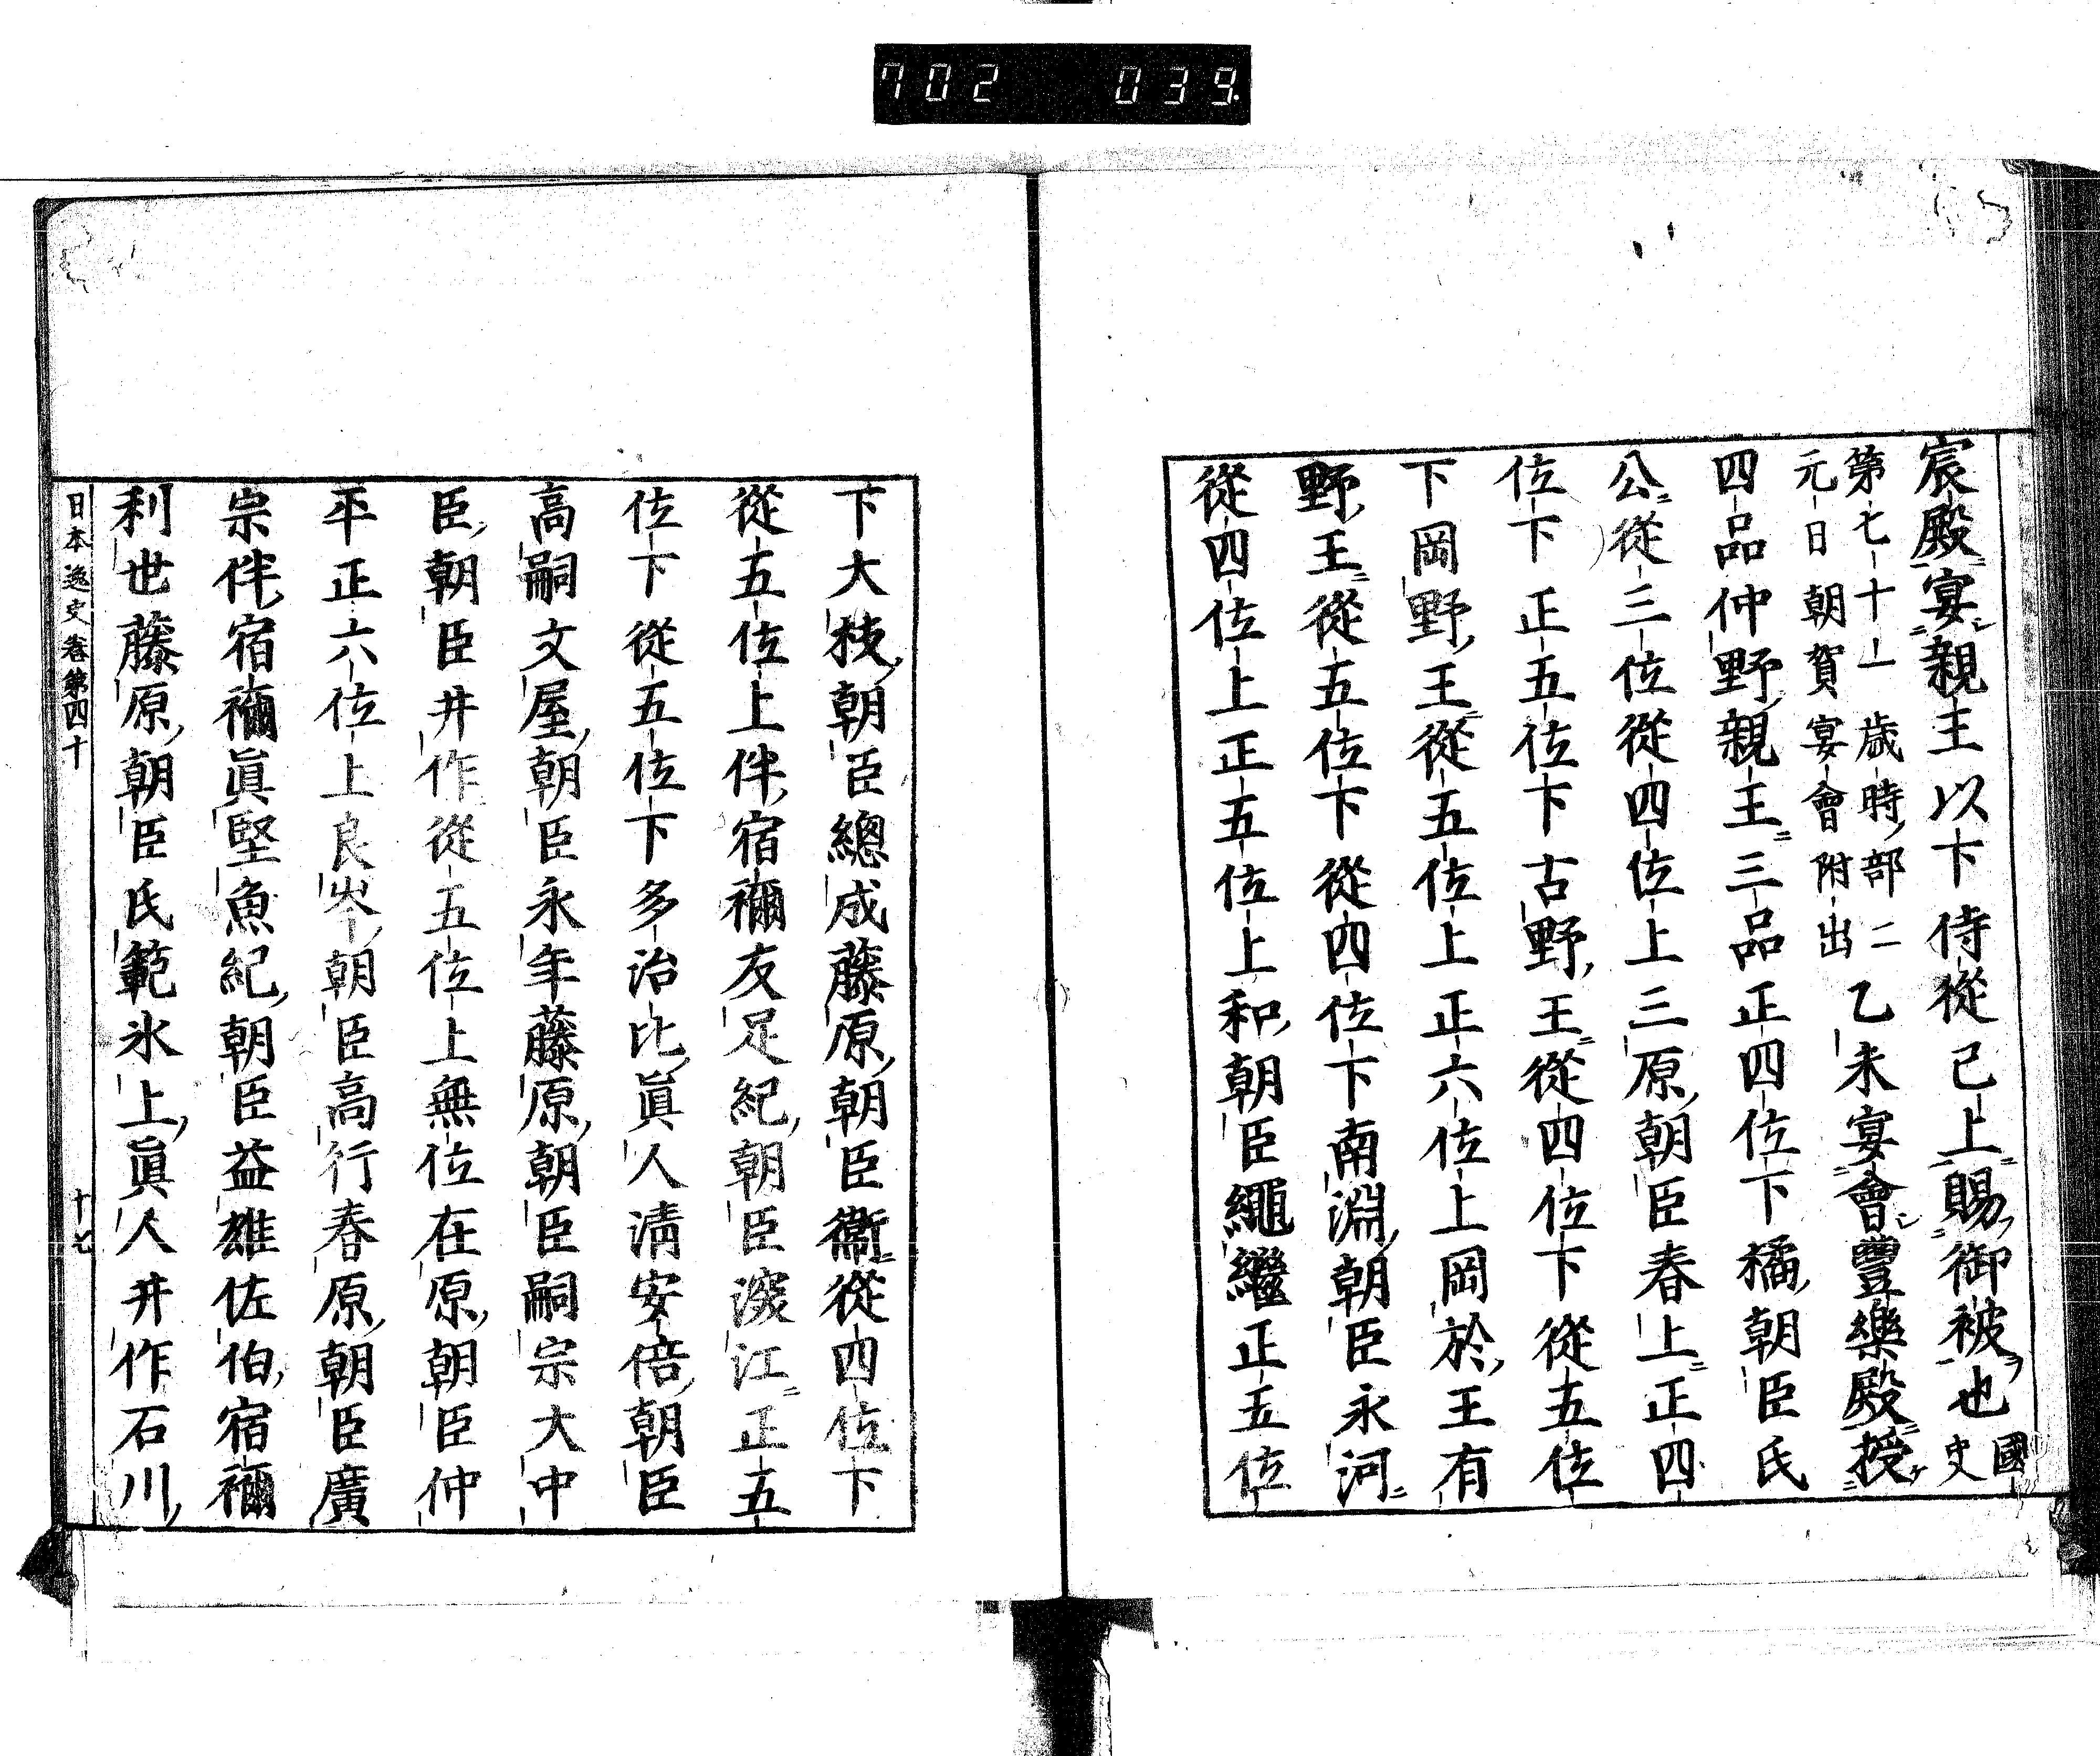 702 039
宸殿宴親王以下侍從已上賜御被也國史
第七十一歳時部二
元日朝賀宴會附出
乙未宴會豐樂殿授
四品仲野親王三品正四位下橘朝臣氏
公從三位從四位上三原朝臣春上正四
位下正五位下古野王從四位下從五位
下岡野王從五位上正六位上岡於王有
野王從五位下從四位下南淵朝臣永河
從四位上正五位上和朝臣繩繼正五位
下大枝朝臣總成藤原朝臣衞從四位下
從五位上伴宿禰友足紀朝臣深江正五
位下從五位下多治比眞人清安倍朝臣
高嗣文屋朝臣永年藤原朝臣嗣宗大中
臣朝臣井作從五位上無位在原朝臣仲
平正六位上良岑朝臣高行春原朝臣廣
宗伴宿禰眞堅魚紀朝臣益雄佐伯宿禰
利世藤原朝臣氏範氷上眞人井作石川
日本逸史卷第四十 十七